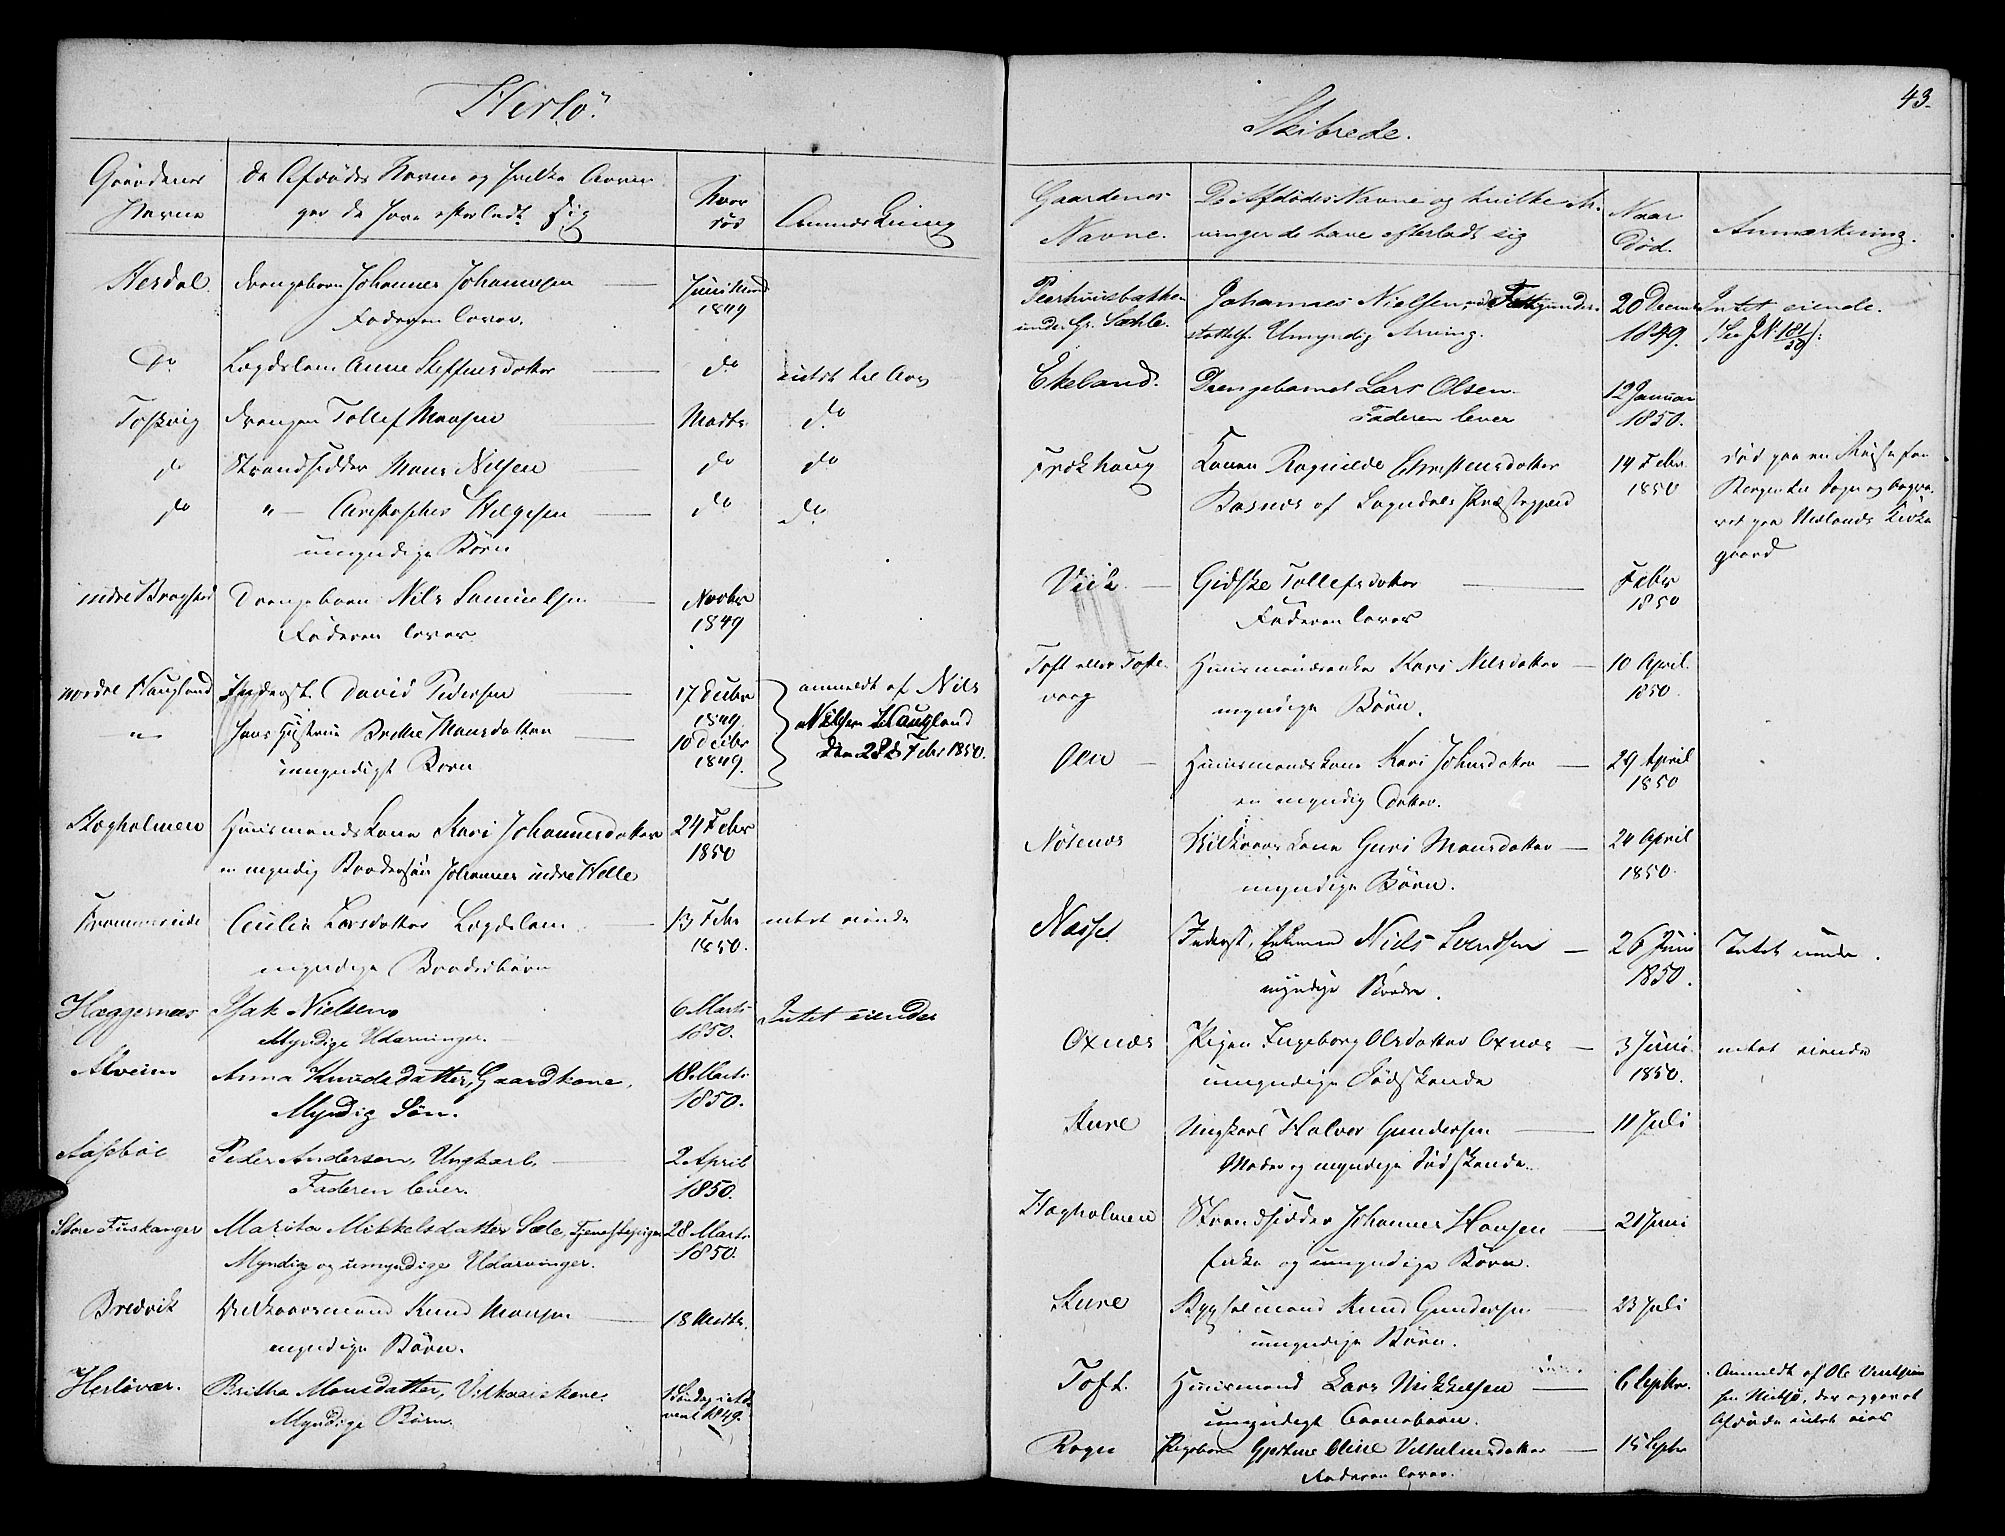 Herlö
Gaardenes
Navne
De Afdødes Navne og hvilke Arvin-
ger de have efterladt sig
Naar
død
Anmærkning
Herdal
Drengebarn Johannes Johannesen
Faderen lever.
Juni Maaned
1849
do
Lægdslem Anne Steffensdatter
do
intet til Arv
Toskvig
Drengen Tollef Monsen
Marts
do
do
Strandsidder Mons Nilsen
do
do
do
" — Christopher Helgesen
umyndige Børn
do
do
indre Bragstad
Drengebarn Nils Samuelsen
Faderen lever
Novbr
1849
nordre Haugland
Inderst David Pedersen
17 Decbr
1849
anmeldt af Nils
"
hans Hustrue Brithe Monsdatter
umyndigt Barn
10 Decbr
1849.
Nilsen Haugland
den 28de Febr 1850.
Hogholmen
Huusmandskone Kari Johannesdatter
en myndig Brodersøn Johannes indre Helle
24 Febr
1850
Frommereide
Cecilia Larsdatter Lægdslem
myndige Brodersbørn
13 Febr
1850.
intet eiende
Hæggernæs
Isak Nielsen
Myndige Udarvinger.
6 Marts
1850.
Intet eiendes
Alveim
Anna Knudsdatter, Gaardkone,
Myndig Søn.
18 Marts
1850.
Aasebøe
Peder Andersen, Ungkarl,
Faderen lever.
2 April
1850.
Store Fuskanger
Marita Mikkelsdatter Sæle, Tjenestepige
Myndig og umyndige Udarvinger.
28 Marts
1850.
Bredvik
Velkaarsmand Knud Monsen
myndige Børn.
18 Marts.
Herløvær.
Britha Monsdatter, Vilkaarskone.
Myndige Børn.
1 Søndag i Ad
vent 1849.
43.
Skibrede.
Gaardenes
Navne.
De Afdødes Navne og hvilke Ar-
vinger de have efterladt sig
Naar
Død.
Anmærkning.
Peerhuusbakken
under Gr. Sæhle.
Johannes Nielsen, Fattigunder-
støttelse. Umyndig Arving.
20 Decmb
1849.
Intet eiende.
Ekeland.
Drengebarnet Lars Olsen.
Faderen lever
12 Januar
1850.
Frækhaug
Konen Ragnilde Christensdatter
Kasnæs af Sogndals Præstegjeld
14 Febr
1850
død paa en Reise fra
Bergen til Sogn og begra-
vet paa Meelands Kirke
gaard
Viik
Gidske Tollefsdatter
Faderen lever
Febr
1850
Toft eller Tofte-
vaag
Huusmandsenke Kari Nilsdatter
myndige Børn.
10 April
1850.
Øen
Huusmandskone Kari Johnsdatter
en myndig Datter.
29 April
1850
Nøtenæs
Vilkaarskone Guri Monsdatter
myndige Børn.
24 April
1850.
Næsset
Inderst, Enkemand Niels Svendsen
myndige Brødre.
26 Juni
1850.
Intet eiende.
Oxnæs
Pigen Ingeborg Olsdatter Oxnæs
umyndige Sødskende
3 Juni
1850.
intet eiende
Sture
Ungkarl Halvor Gundersen
Moder og myndige Sødskende.
11 Juli
Hogholmen
Strandsidder Johannes Hansen
Enke og umyndige Børn.
21 Juni
Sture
Bygselmand Knud Gundersen
umyndige Børn.
23 Juli
Toft.
Huusmand Lars Mikkelsen
umyndigt Barnebarn.
6 Septbr.
Anmeldt af Ole
der opgav at
Afdøde intet eier
Rogn
Pigebarn Gjertine Oline Vilhelmsdatter
Faderen lever.
15 Septbr